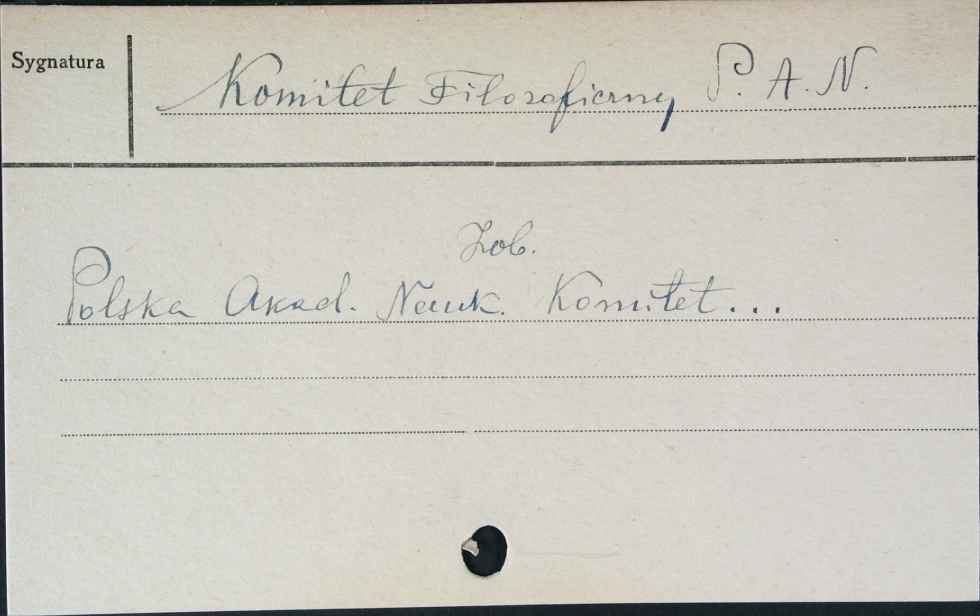 Sygnatura
Komitet Filozoficzny P. A. N.
Zob.
Polska Akad. Nauk. Komitet...